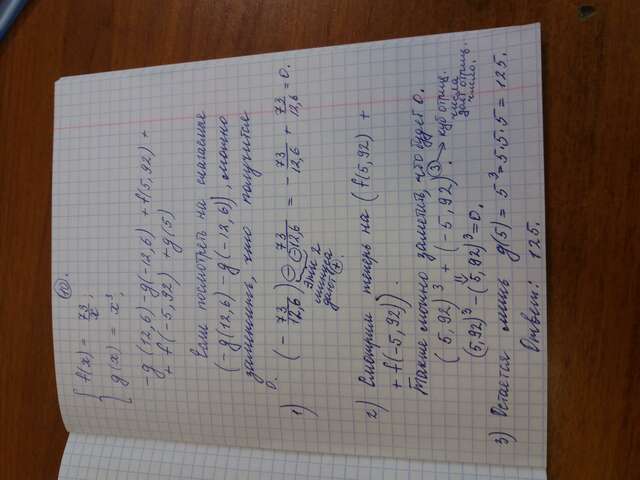 10.
{ f(x) = 73/x ;
g(x) = x³ ;
-g(12,6) - g(-12,6) + f(5,92) +
+ f(-5,92) + g(5)
Если посмотреть на слагаемые
(-g(12,6) - g(-12,6)), можно
заметить, что получится
0.
1) (- 73/12,6) - 73/-12,6 = - 73/12,6 + 73/12,6 = 0.
Эти 2
минуса
дают +.
2) Смотрим теперь на (f(5,92) +
+ f(-5,92)).
Также можно заметить, что будет 0.
(5,92)³ + (-5,92)³. → куб отриц.
числа
даёт отриц.
число.
⇓
(5,92)³ - (5,92)³ = 0.
3) Остаётся лишь g(5) = 5³ = 5·5·5 = 125.
Ответ: 125.